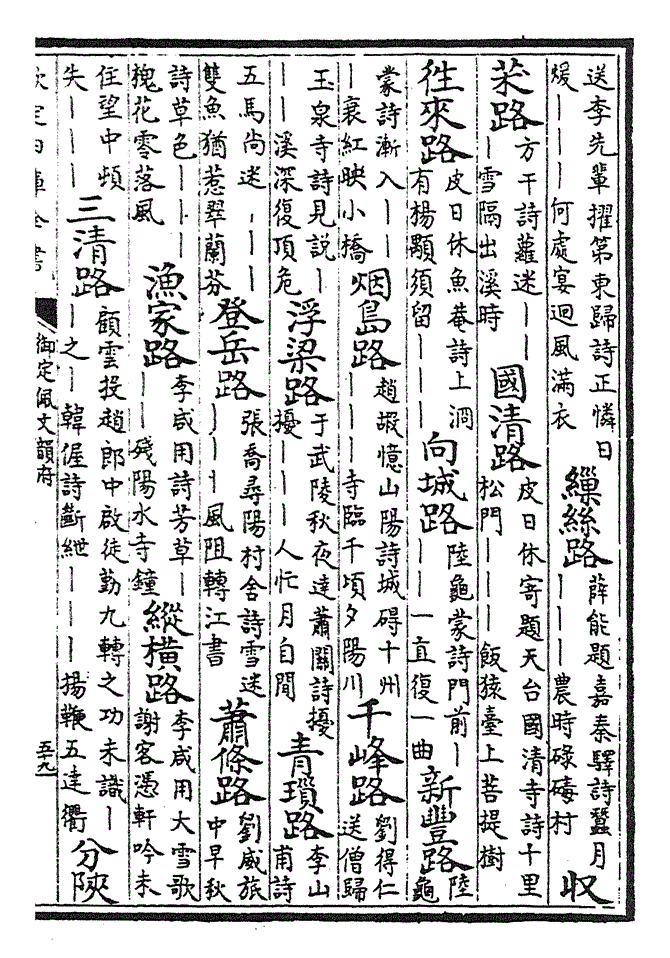 送李先輩擢第東歸詩正憐日
煖———何處宴迴風滿衣
繅絲路
薛能題嘉秦驛詩蠶月
———農時碌碡村
収
茶路
方干詩蘿迷——
—雪隔出溪時
國清路
皮日休寄題天台國清寺詩十里
松門———飯猿臺上菩提樹
徃來路
皮日休魚菴詩上澗
有楊顒須留———
向城路
陸龜蒙詩門前—
——一直復一曲
新豐路
陸
龜
蒙詩漸入——
—衰紅映小橋
烟島路
趙嘏憶山陽詩城碍十州
———寺臨千頃夕陽川
千峰路
劉得仁
送僧歸
玉泉寺詩見説—
——溪深復頂危
浮梁路
于武陵秋夜達蕭關詩擾
擾———人忙月自閒
青瑣路
李山
甫詩
五馬尚迷———
雙魚猶惹翠蘭芬
登岳路
張喬尋陽村舍詩雪迷
———風阻轉江書
蕭條路
劉威旅
中早秋
詩草色———
槐花零落風
漁家路
李咸用詩芳草—
——殘陽水寺鐘
縱横路
李咸用大雪歌
謝客憑軒吟未
住望中頻
失———
三清路
顧雲投趙郎中啟徒勤九轉之功未識—
——之韓偓詩斷紲———揚鞭五達衢
分陝
欽定四庫全書
御定佩文韻府
五十九